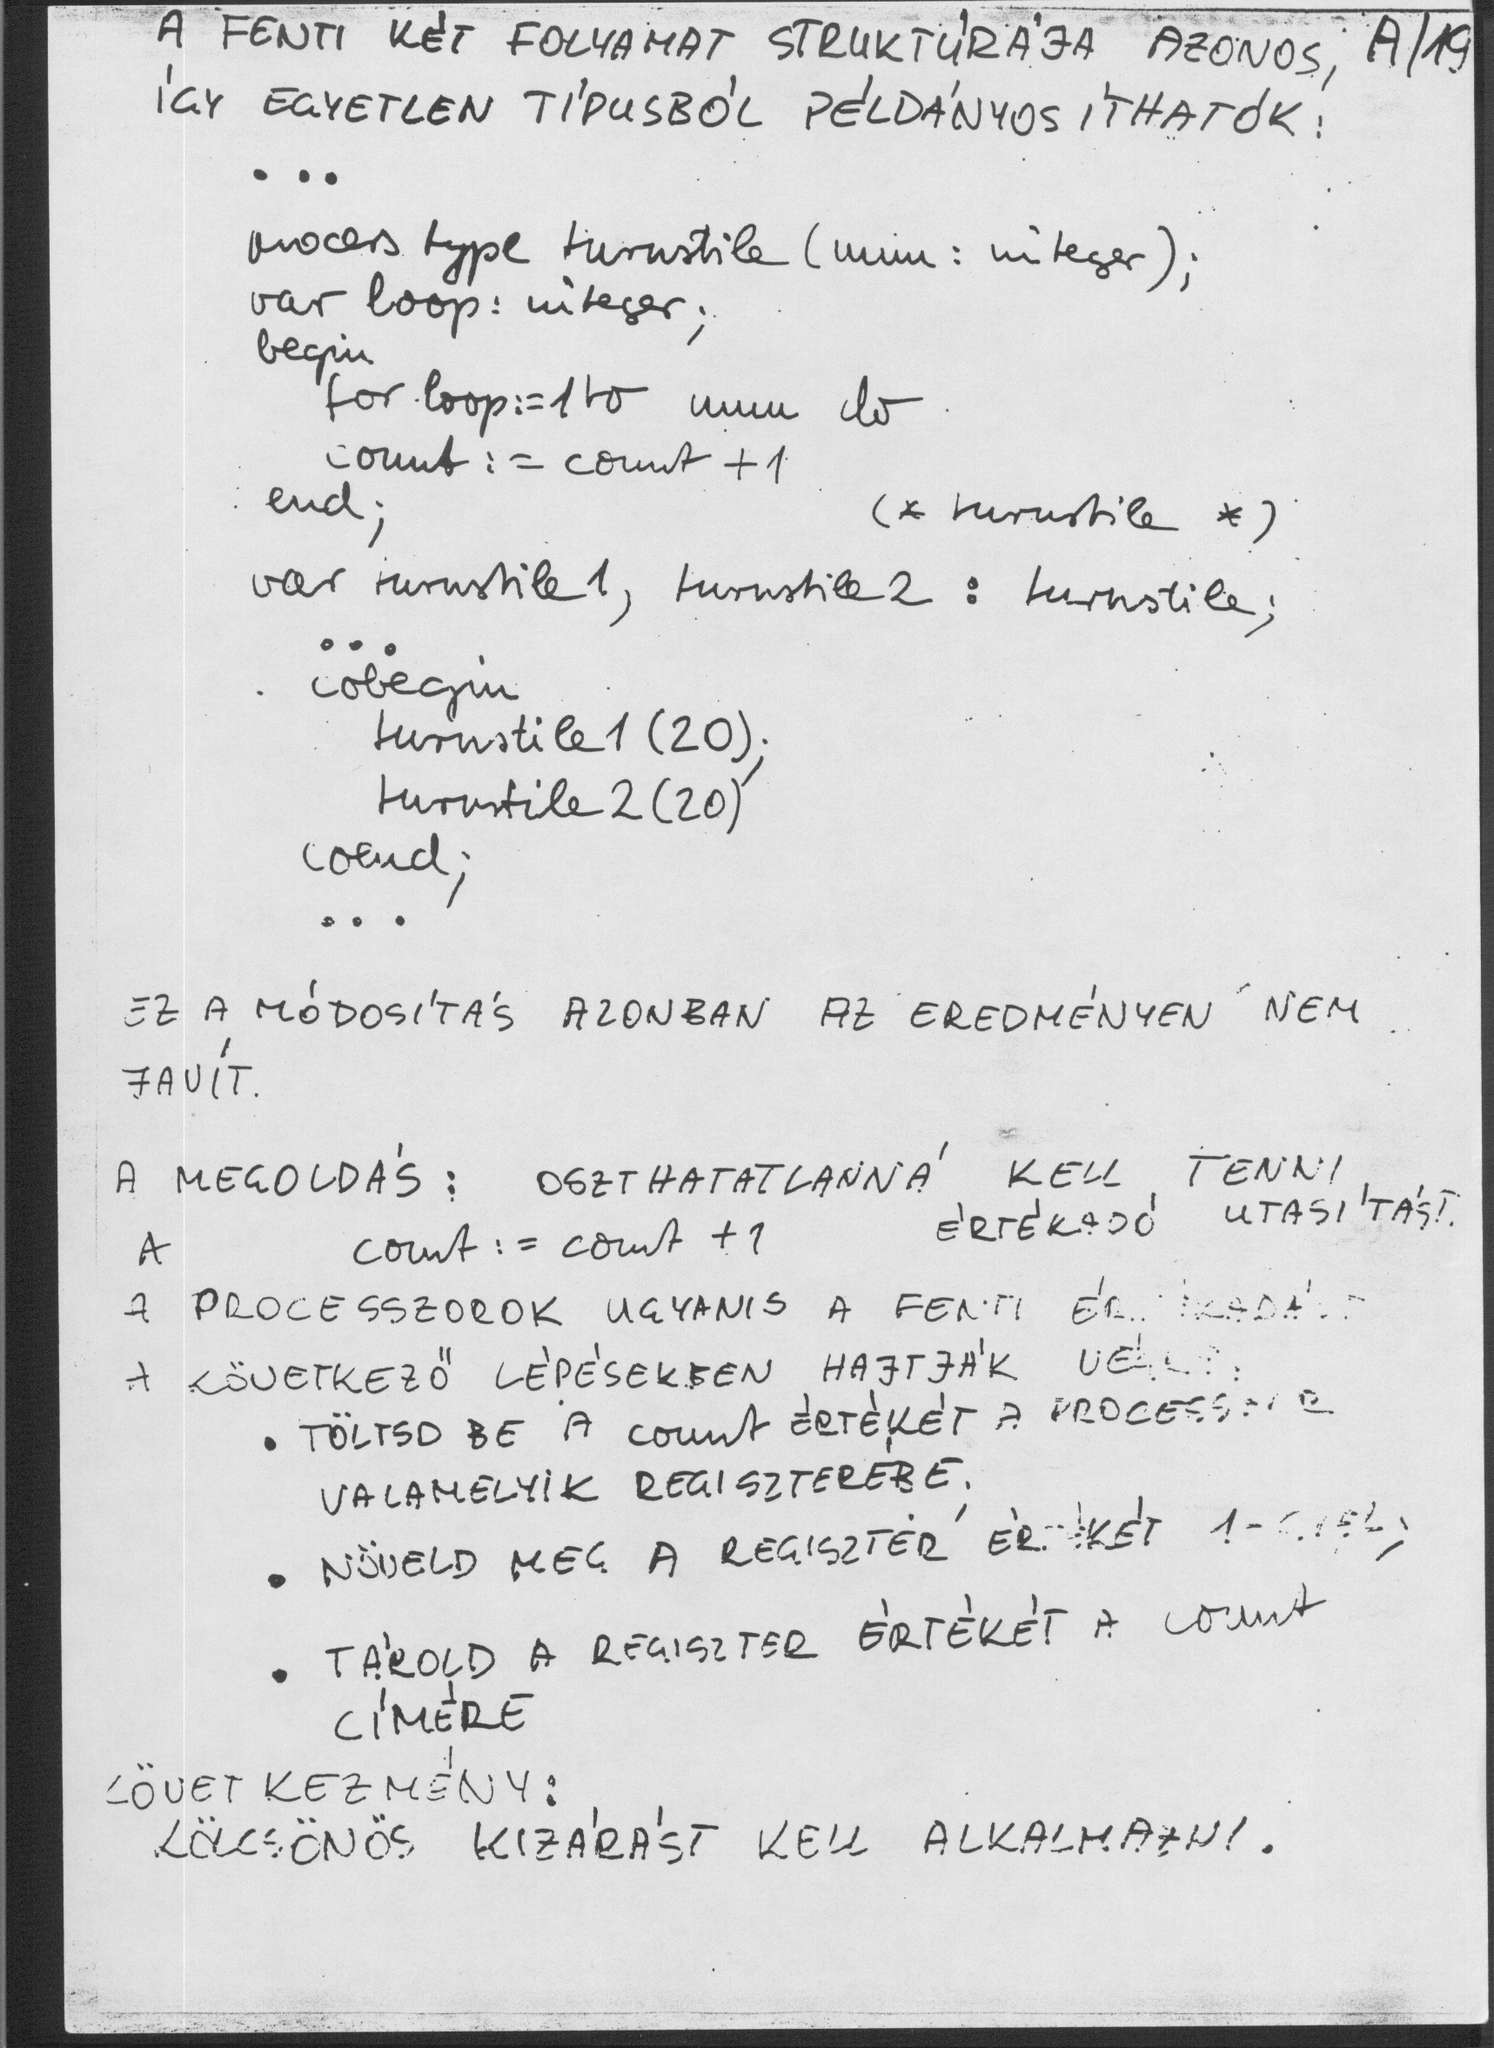 A FENTI KÉT FOLYAMAT STRUKTÚRÁJA AZONOS, A/19
ÍGY EGYETLEN TÍPUSBÓL PÉLDÁNYOSÍTHATÓK:
...
process type turnstile (num: integer);
var loop: integer;
begin
for loop:=1 to num do
count := count + 1
end; (* turnstile *)
var turnstile1, turnstile2 : turnstile;
...
cobegin
turnstile1 (20);
turnstile2 (20)
coend;
...
EZ A MÓDOSÍTÁS AZONBAN AZ EREDMÉNYEN NEM
JAVÍT.
A MEGOLDÁS: OSZTHATATLANNÁ KELL TENNI
A count := count + 1 ÉRTÉKADÓ UTASÍTÁST.
A PROCESSZOROK UGYANIS A FENTI
A KÖVETKEZŐ LÉPÉSEKBEN HAJTJÁK
• TÖLTSD BE A count ÉRTÉKÉT A PROCESSZOR
VALAMELYIK REGISZTERÉBE.
• NÖVELD MEG A REGISZTER ÉRTÉKÉT 1-GYEL;
• TÁROLD A REGISZTER ÉRTÉKÉT A count
CÍMÉRE
KÖVETKEZMÉNY:
KÖLCSÖNÖS KIZÁRÁST KELL ALKALMAZNI.